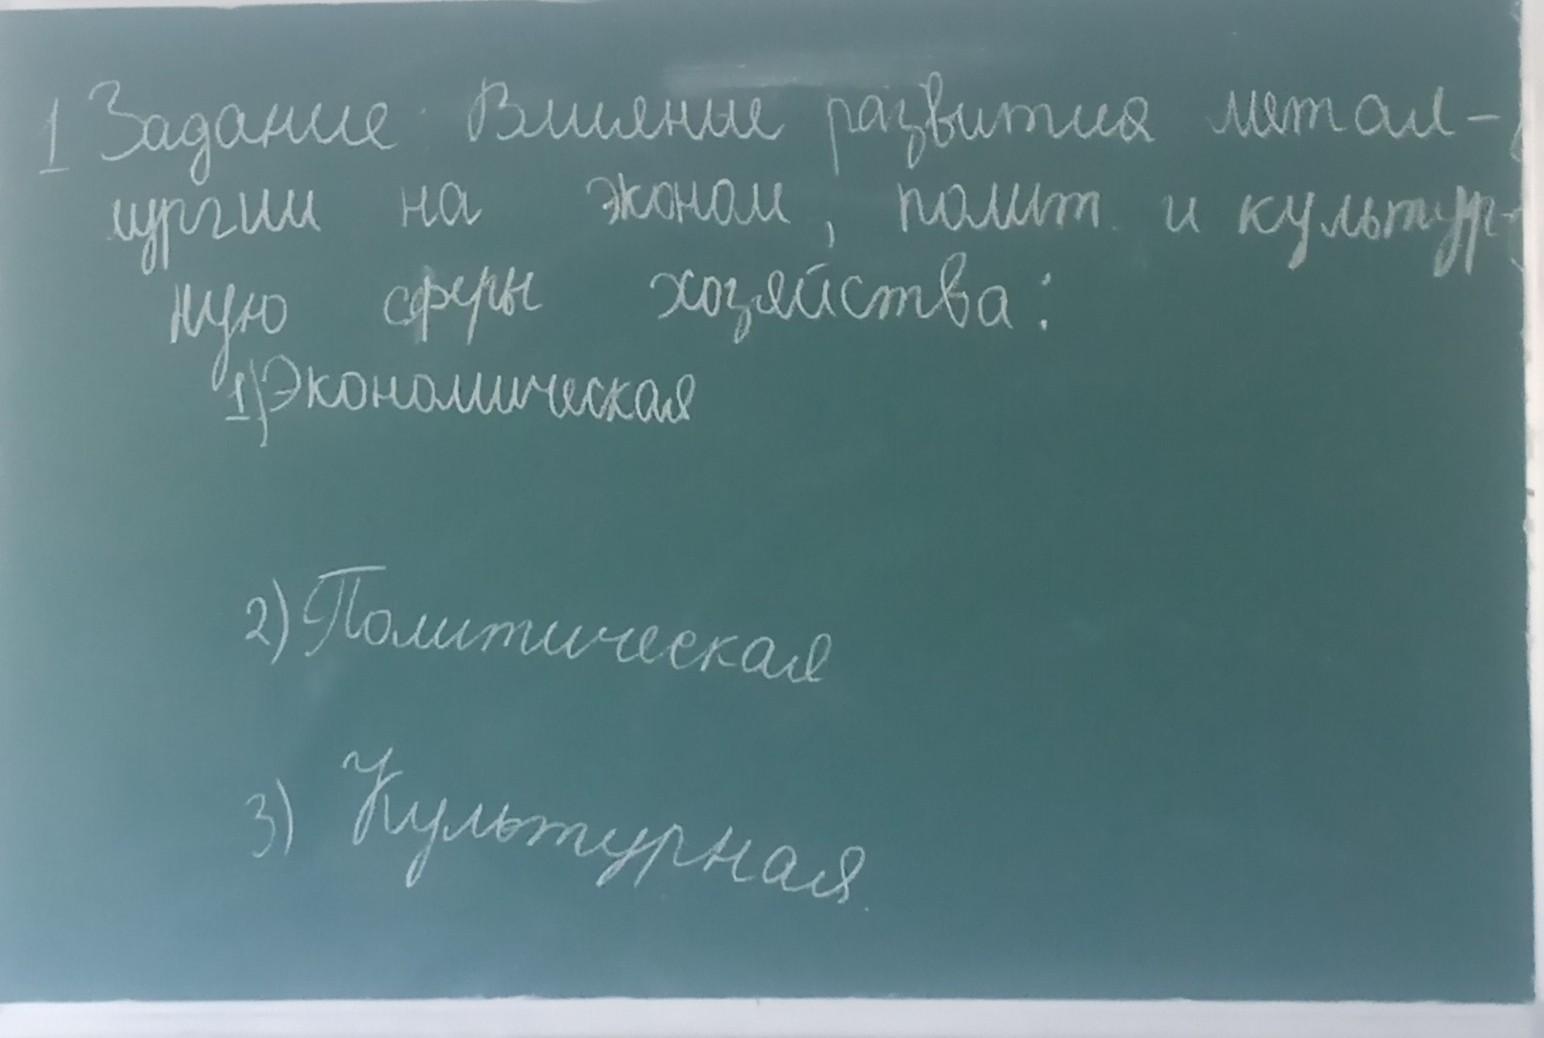 1 Задание. Влияние развития метал-
лургии на эконом, полит. и культур-
ную сферы хозяйства:
1) Экономическая
2) Политическая
3) Культурная.